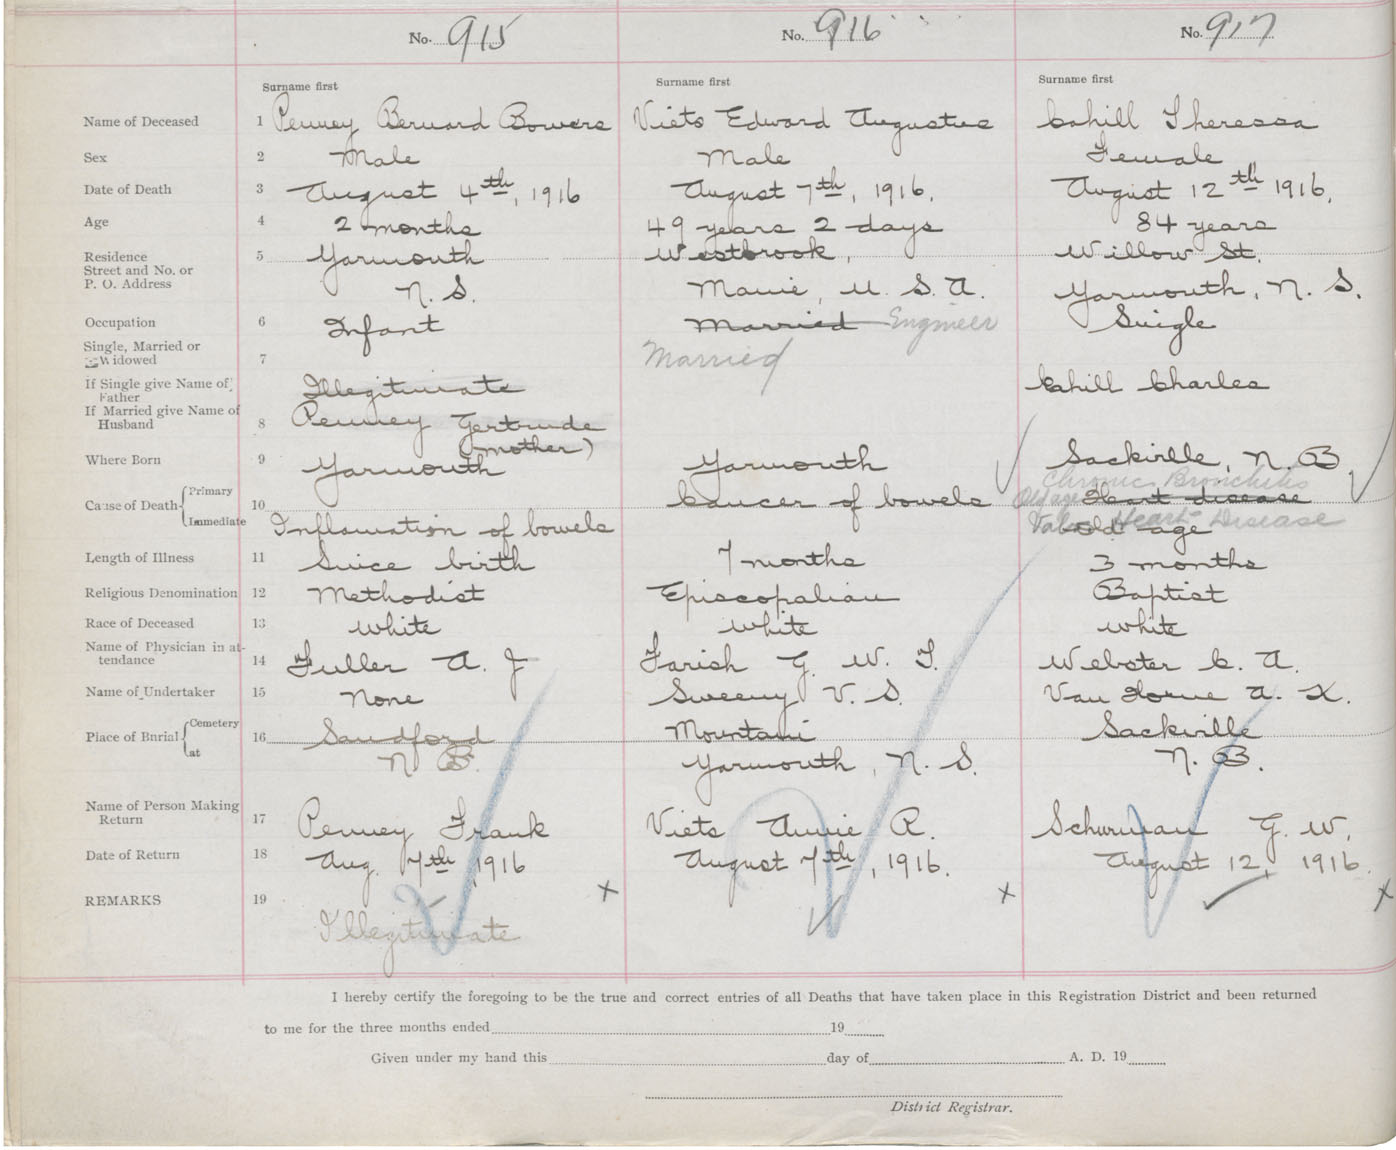 No. 915 No. 916 No. 917
Surname first Surname first Surname first
Name of Deceased 1 Penney Bernard Bowers Viets Edward Augustus Cahill Theressa
Sex 2 Male Male Female
Date of Death 3 August 4th, 1916 August 7th, 1916. August 12th 1916.
Age 4 2 months 49 years 2 days 84 years
Residence 5 Yarmouth Westbrook, Willow St.
Street and No. or
P. O. Address N. S. Maine, U. S. A. Yarmouth, N. S.
Occupation 6 Infant Married Engineer Single
Single, Married or
Widowed 7 Married
If Single give Name of Illegitimate Cahill Charles
Father
If Married give Name of Penney Gertrude
Husband 8 (mother)
Where Born 9 Yarmouth Yarmouth Sackville, N. B
Chronic Bronchitis
Cause of Death { Primary 10 Cancer of bowels Old age Heart disease
Immediate Inflamation of bowels old age Heart Disease
Length of Illness 11 Since birth 7 months 3 months
Religious Denomination 12 Methodist Episcopalian Baptist
Race of Deceased 13 White White White
Name of Physician in at-
tendance 14 Fuller A. J Farish G. W. T. Webster C. A.
Name of Undertaker 15 None Sweeny V. S. Van Horne A. K.
Place of Burial { Cemetery 16 Sandford Mountain Sackville
at N B. Yarmouth, N. S. N. B.
Name of Person Making
Return 17 Penney Frank Viets Annie R. Schurman G. W.
Date of Return 18 Aug. 7th, 1916 August 7th, 1916. August 12, 1916.
REMARKS 19 x x x
Illegitimate
I hereby certify the foregoing to be the true and correct entries of all Deaths that have taken place in this Registration District and been returned
to me for the three months ended 19
Given under my hand this day of A. D. 19
District Registrar.